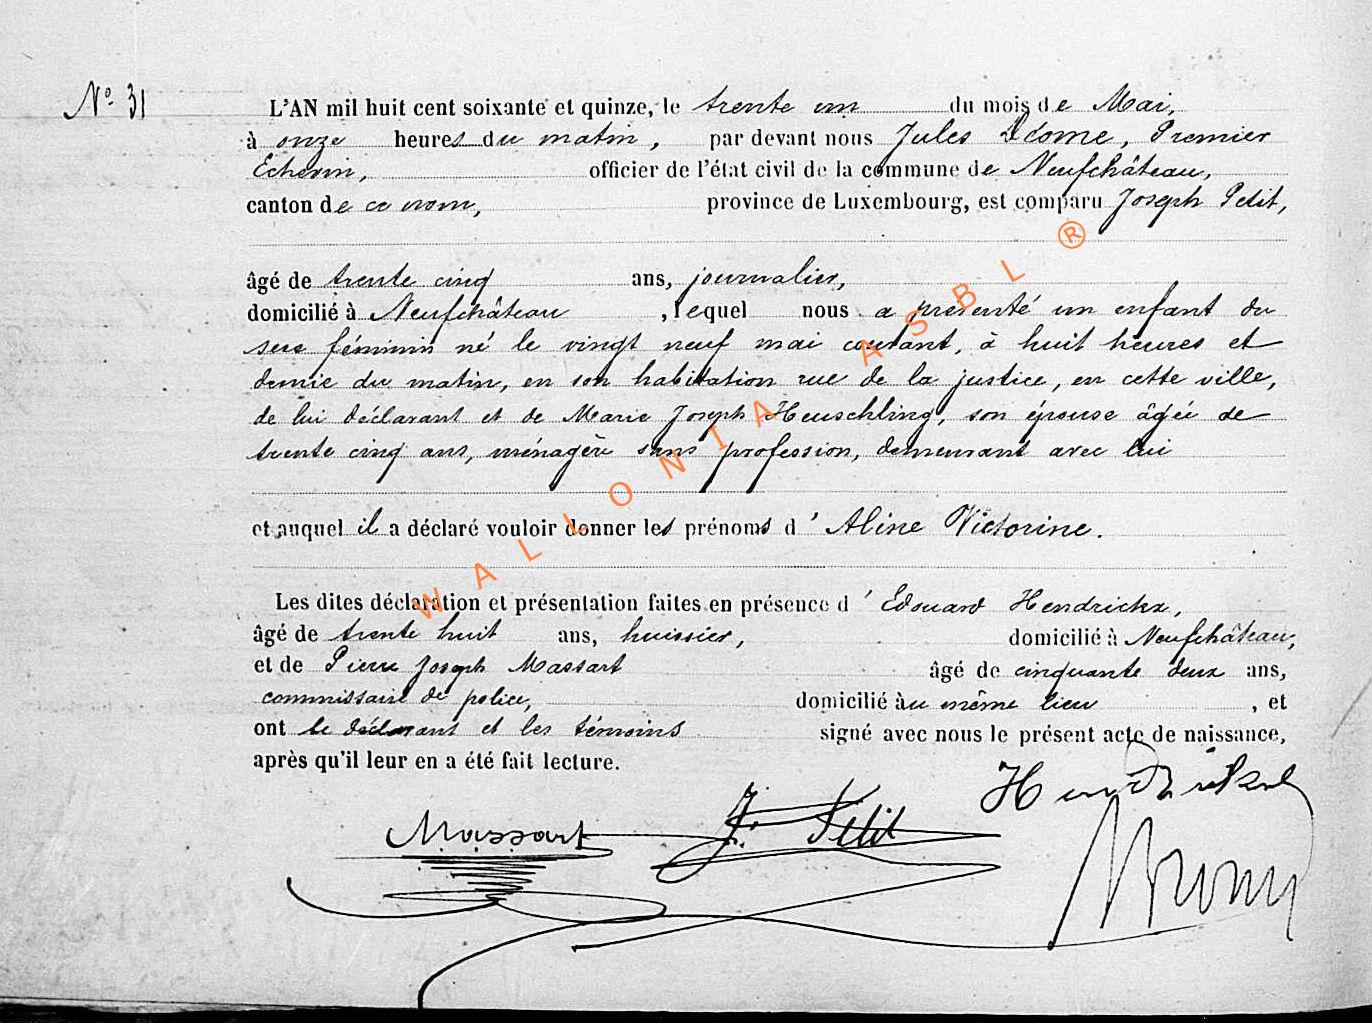 N° 31
L'AN mil huit cent soixante et quinze, le trente un du mois de Mai,
à onze heures du matin, par devant nous Jules Premier
Echevin, officier de l'état civil de la commune de Neufchâteau,
canton de ce nom, province de Luxembourg, est comparu Joseph Petit,
âgé de trente cinq ans, journalier,
domicilié à Neufchâteau, lequel nous a présenté un enfant du
sexe féminin né le vingt neuf mai courant, à huit heures et
demie du matin, en son habitation rue de la justice, en cette ville,
de lui déclarant et de Marie Joseph Heuschling, son épouse âgée de
trente cinq ans, ménagère sans profession, demeurant avec lui
et auquel il a déclaré vouloir donner les prénoms d'Aline Victorine.
Les dites déclaration et présentation faites en présence d'Edouard Hendrickx,
âgé de trente huit ans, huissier, domicilié à Neufchâteau,
et de Pierre Joseph Massart âgé de cinquante deux ans,
commissaire de police, domicilié au même lieu, et
ont le déclarant et les témoins signé avec nous le présent acte de naissance,
après qu'il leur en a été fait lecture.
Massart J. Petit
WALLONIA ASBL ®